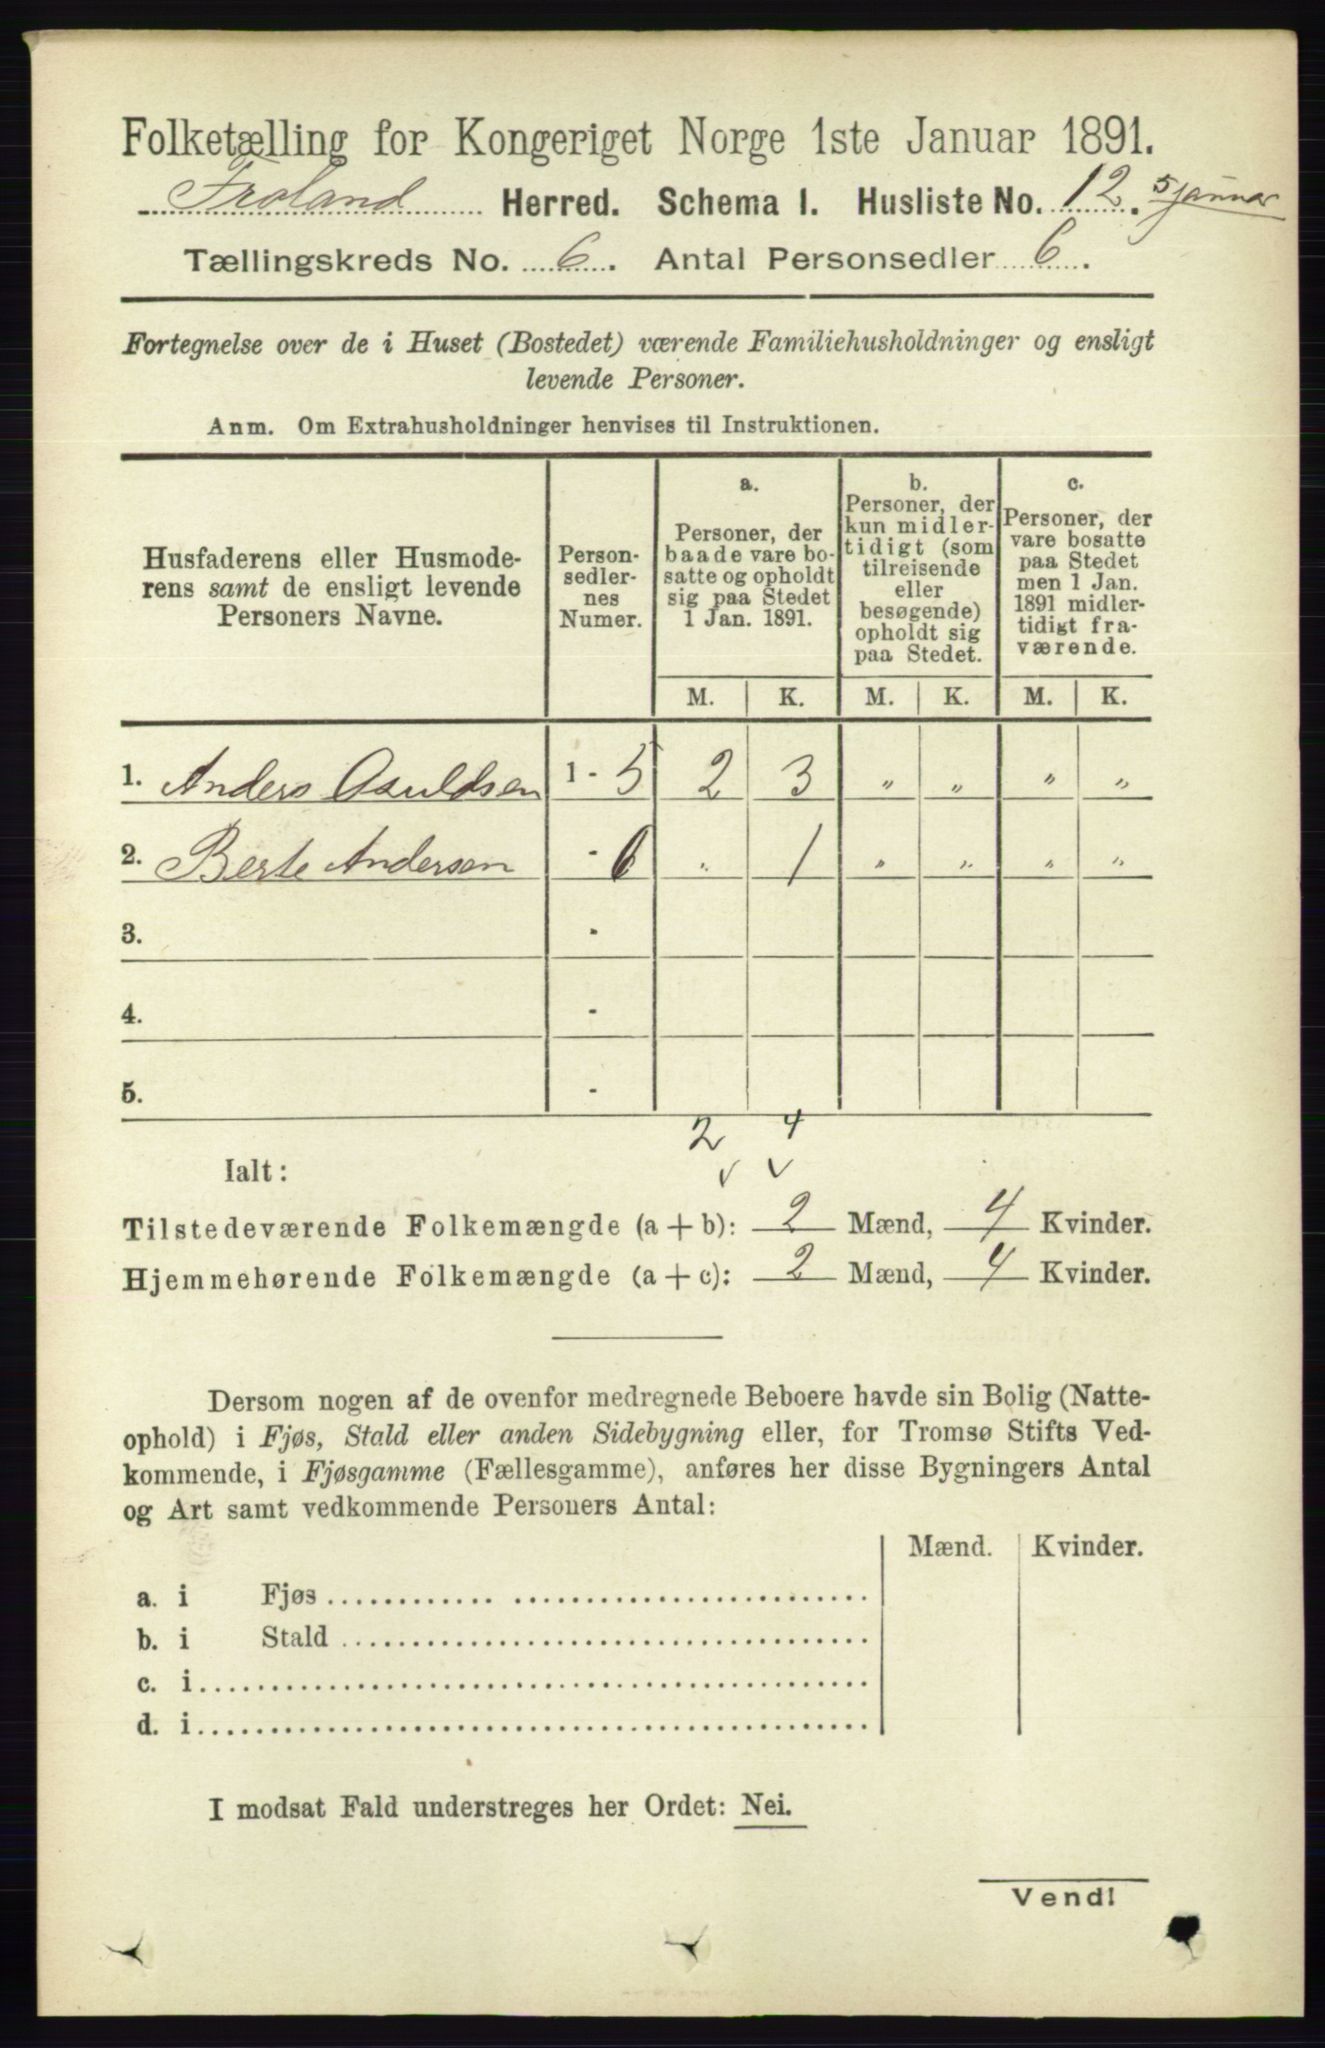 Folketælling for Kongeriget Norge 1ste Januar 1891.
Froland Herred. Schema I. Husliste No. 12. 5 januar
Tællingskreds No. 6. Antal Personsedler 6.
Fortegnelse over de i Huset (Bostedet) værende Familiehusholdninger og ensligt
levende Personer.
Anm. Om Extrahusholdninger henvises til Instruktionen.
Husfaderens eller Husmode-
rens samt de ensligt levende
Personers Navne.
Person-
sedler-
nes
Numer.
a.
Personer, der
baade vare bo-
satte og opholdt
sig paa Stedet
1 Jan. 1891.
b.
Personer, der
kun midler-
tidigt (som
tilreisende
eller
besøgende)
opholdt sig
paa Stedet.
c.
Personer, der
vare bosatte
paa Stedet
men 1 Jan.
1891 midler-
tidigt fra-
værende.
M. K. M. K. M. K.
1. Anders Osuldsen 1 - 5 2 3 " " " "
2. Berte Andersen - 6 " 1 " " " "
3. -
4. -
5. -
2 4
Ialt: v v
Tilstedeværende Folkemængde (a + b): 2 Mænd, 4 Kvinder.
Hjemmehørende Folkemængde (a + c): 2 Mænd, 4 Kvinder.
Dersom nogen af de ovenfor medregnede Beboere havde sin Bolig (Natte-
ophold) i Fjøs, Stald eller anden Sidebygning eller, for Tromsø Stifts Ved-
kommende, i Fjøsgamme (Fællesgamme), anføres her disse Bygningers Antal
og Art samt vedkommende Personers Antal:
Mænd. Kvinder.
a. i Fjøs
b. i Stald
c. i
d. i
I modsat Fald understreges her Ordet: Nei.
Vend!